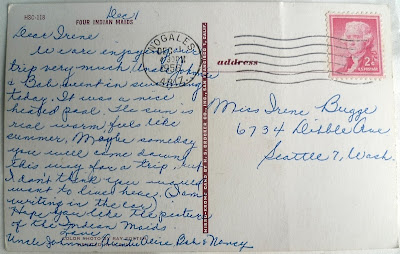 HSC-118
FOUR INDIAN MAIDS
Dec 1
Dear Irene
We are enjoying our
trip very much. Uncle John
& Bob went in swimming
today. It was a nice
heated pool. The sun is
real warm feel like
summer. Maybe someday
you will come down
this way for a trip, but
I don't think you would
want to live here. (I am
writing in the car)
Hope you like the picture
of the Indian Maids.
Love
Uncle John Bob & Nancy
COLOR PHOTO BY RAY
NOGALES
DEC
PM
ARIZ.
address
2¢
Miss Irene Bugge
6734 Dibble Ave
Seattle 7, Wash.